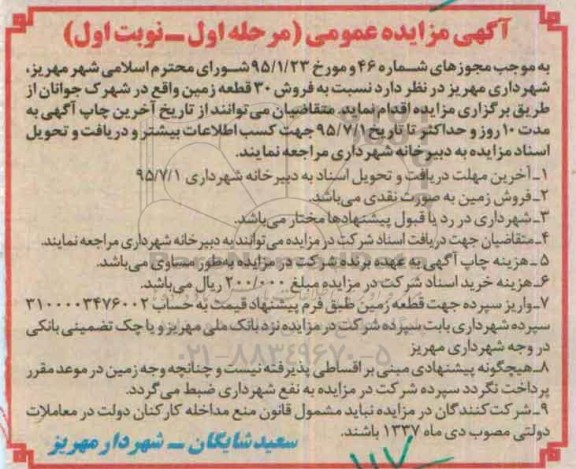 آگهی مزایده عمومی (مرحله اول ـ نوبت اول)
به موجب مجوزهای شماره ۴۶ و مورخ ۹۵/۱/۲۳ شورای محترم اسلامی شهر مهریز،
شهرداری مهریز در نظر دارد نسبت به فروش ۳۰ قطعه زمین واقع در شهرک جوانان از
طریق برگزاری مزایده اقدام نماید. متقاضیان می توانند از تاریخ آخرین چاپ آگهی به
مدت ۱۰ روز و حداکثر تا تاریخ ۹۵/۷/۱ جهت کسب اطلاعات بیشتر و دریافت و تحویل
اسناد مزایده به دبیرخانه شهرداری مراجعه نمایند.
۱ـ آخرین مهلت دریافت و تحویل اسناد به دبیرخانه شهرداری ۹۵/۷/۱
۲ـ فروش زمین به صورت نقدی می‌باشد.
۳ـ شهرداری در رد یا قبول پیشنهادها مختار می‌باشد.
۴ـ متقاضیان جهت دریافت اسناد شرکت در مزایده می‌توانند به دبیرخانه شهرداری مراجعه نمایند.
۵ ـ هزینه چاپ آگهی به عهده برنده شرکت در مزایده به‌طور مساوی می‌باشد.
۶ـ هزینه خرید اسناد شرکت در مزایده مبلغ ۲۰۰/۰۰۰ ریال می‌باشد.
۷ـ واریز سپرده جهت قطعه زمین طبق فرم پیشنهاد قیمت به حساب ۳۱۰۰۰۰۳۴۷۶۰۰۲
سپرده شهرداری بابت سپرده شرکت در مزایده نزد بانک ملی مهریز و یا چک تضمینی بانکی
در وجه شهرداری مهریز
۰۲۱-۸۸۳۴۹۶۷۰-۵
۸ـ هیچگونه پیشنهادی مبنی بر اقساطی پذیرفته نیست و چنانچه وجه زمین در موعد مقرر
پرداخت نگردد سپرده شرکت در مزایده به نفع شهرداری ضبط می‌گردد.
۹ـ شرکت‌کنندگان در مزایده نباید مشمول قانون منع مداخله کارکنان دولت در معاملات
دولتی مصوب دی ماه ۱۳۳۷ باشند.
سعید شایگان ـ شهردار مهریز